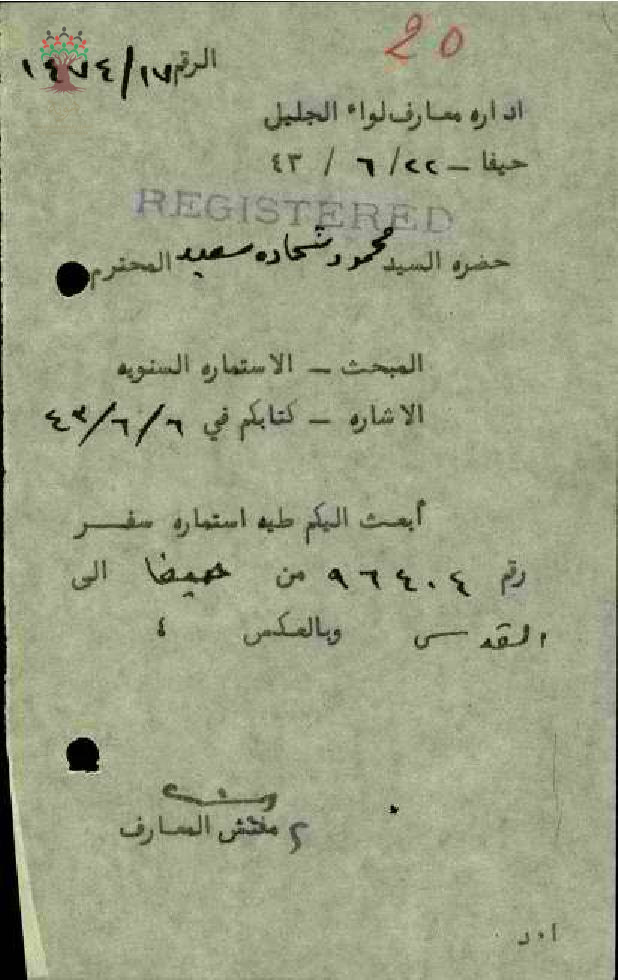 20
الرقم ١٧/١٤٧٤
اداره معارف لواء الجليل
حيفا – ٢٢/ ٦ / ٤٣
REGISTERED
حضره السيد محمود شحاده سعيد المحترم
المبحث – الاستماره السنويه
الاشاره – كتابكم في ٦/٦/٤٣
أبعث اليكم طيه استماره سفر
رقم ٩٦٤٠٤ من حيفا الى
القدس وبالعكس ٤
مفتش المعارف